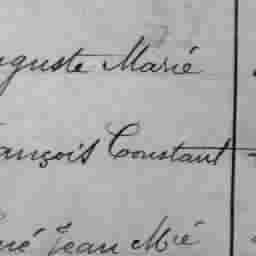 uguste Marie
ançois Constant
né Jean Mié